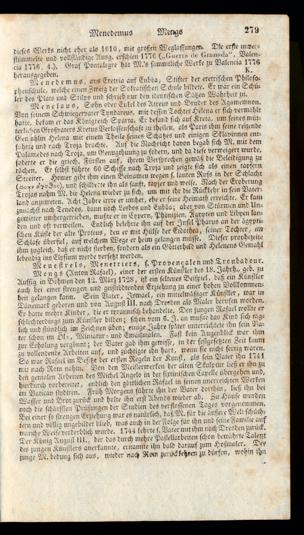 Menedemus Mengs 279
dieses Werks nicht eher als 1610, mit großen Weglassungen. Die erste unver-
stümmelte und vollständige Ausg. erschien 1776 („Guerra de Granada“, Valen-
cia 1776, 4.). Graf Portalegre hat M.'s sämmtliche Werke zu Valencia 1776
herausgegeben. K.
Menedemus, aus Eretria auf Euböa, Stifter der eretrischen Philoso-
phenschule, welche einen Zweig der Sokratischen Schule bildet. Er war ein Schü-
ler des Plato und Stilpo und schrieb nur den identischen Sätzen Wahrheit zu.
Menelaus, Sohn oder Enkel des Atreus und Bruder des Agamemnon.
Von seinem Schwiegervater Tyndareus, mit dessen Tochter Helena er sich vermählt
hatte, bekam er das Königreich Sparta. Er befand sich auf Kreta, um seines müt-
terlichen Großvaters Kreteus Verlassenschaft zu theilen, als Paris ihm seine reizende
Gemahlin Helena mit einem Theile seiner Schätze und einigen Sklavinnen ent-
führte und nach Troja brachte. Auf die Nachricht davon begab sich M. mit dem
Palamedes nach Troja, um Genugthuung zu fodern, und da diese verweigert wurde,
foderte er die griech. Fürsten auf, ihrem Versprechen gemäß die Beleidigung zu
rächen. Er selbst führte 60 Schiffe nach Troja und zeigte sich als einen tapfern
Streiter. Homer gibt ihm einen Beinamen wegen s. lauten Rufs in der Schlacht
und schilderte ihn als sanft, tapfer und weise. Nach der Eroberung
Trojas nahm M. die Helena wieder zu sich, um mit ihr die Rückkehr in sein Vater-
land anzutreten. Acht Jahre irrte er umher, ehe er seine Heimath erreichte. Er kam
zunächst nach Tenedos, dann nach Lesbos und Euböa; aber von Stürmen und Un-
gewitter umhergetrieben, mußte er in Cypern, Phönizien, Ägypten und Libyen lan-
den und oft verweilen. Endlich belehrte ihn auf der Insel Pharus an der ägypti-
schen Küste der alte Proteus, den er mit Hülfe der Eidothea, seiner Tochter, im
Schlafe überfiel, auf welchem Wege er heim gelangen müsse. Dieser prophezeite
ihm zugleich, daß er nicht sterben, sondern als ein Götterssohn und Helenens Gemahl
lebendig ins Elysium werde versetzt werden.
Menestrels, Menetriers, s. Provençalen und Troubadour.
Mengs (Anton Rafael), einer der ersten Künstler des 18. Jahrh., geb. zu
Aussig in Böhmen den 12. März 1728, ist ein seltenes Beispiel, daß ein Künstler
auch bei einer strengen und geistödenden Erziehung zu einer hohen Vollkommen-
heit gelangen kann. Sein Vater, Ismael, ein mittelmäßiger Künstler, war in
Dänemark geboren und von August III. nach Dresden als Maler berufen worden.
Er hatte mehre Kinder, die er tyrannisch behandelte. Den jungen Rafael wollte er
schlechterdings zum Künstler bilden; schon vom 6. J. an mußte das Kind sich täg-
lich und stündlich im Zeichnen üben; einige Jahre später unterrichtete ihn sein Va-
ter schon im Öl-, Miniatur- und Emailmalen. Fast kein Augenblick war ihm
zur Erholung vergönnt; der Vater gab ihm gewisse, in der festgesetzten Zeit streng
zu vollendende Arbeiten auf, und züchtigte ihn hart, wenn sie nicht fertig waren.
So war Rafael im Besitze der ersten Regeln der Kunst, als sein Vater ihn 1741
mit nach Rom nahm. Von den Meisterwerken der alten Skulptur ließ er ihn zu
den genialen Arbeiten des Michel Angelo in der sixtinischen Capelle übergehen und,
hierdurch vorbereitet, endlich den göttlichen Rafael in seinen unerreichten Werken
im Vatican studiren. Früh Morgens führte ihn der Vater dorthin, ließ ihn bei
Wasser und Brot zurück und holte ihn erst Abends wieder ab. Zu Hause wurden
noch die schärfsten Prüfungen der Studien des verflossenen Tages vorgenommen.
Bei einer so strengen Erziehung war es natürlich, daß M. für die äußere Welt schüch-
tern und völlig ungebildet blieb, was auch in der Folge für ihn und seine Familie auf
manche Weise verderblich wurde. 1744 kehrte s. Vater mit ihm nach Dresden zurück.
Der König August III., der das durch mehre Pastellarbeiten schon bewährte Talent
des jungen Künstlers anerkannte, ernannte ihn bald darauf zum Hofmaler. Der
junge M. bedung sich aus, wieder nach Rom zurückkehren zu dürfen, wohin ihn